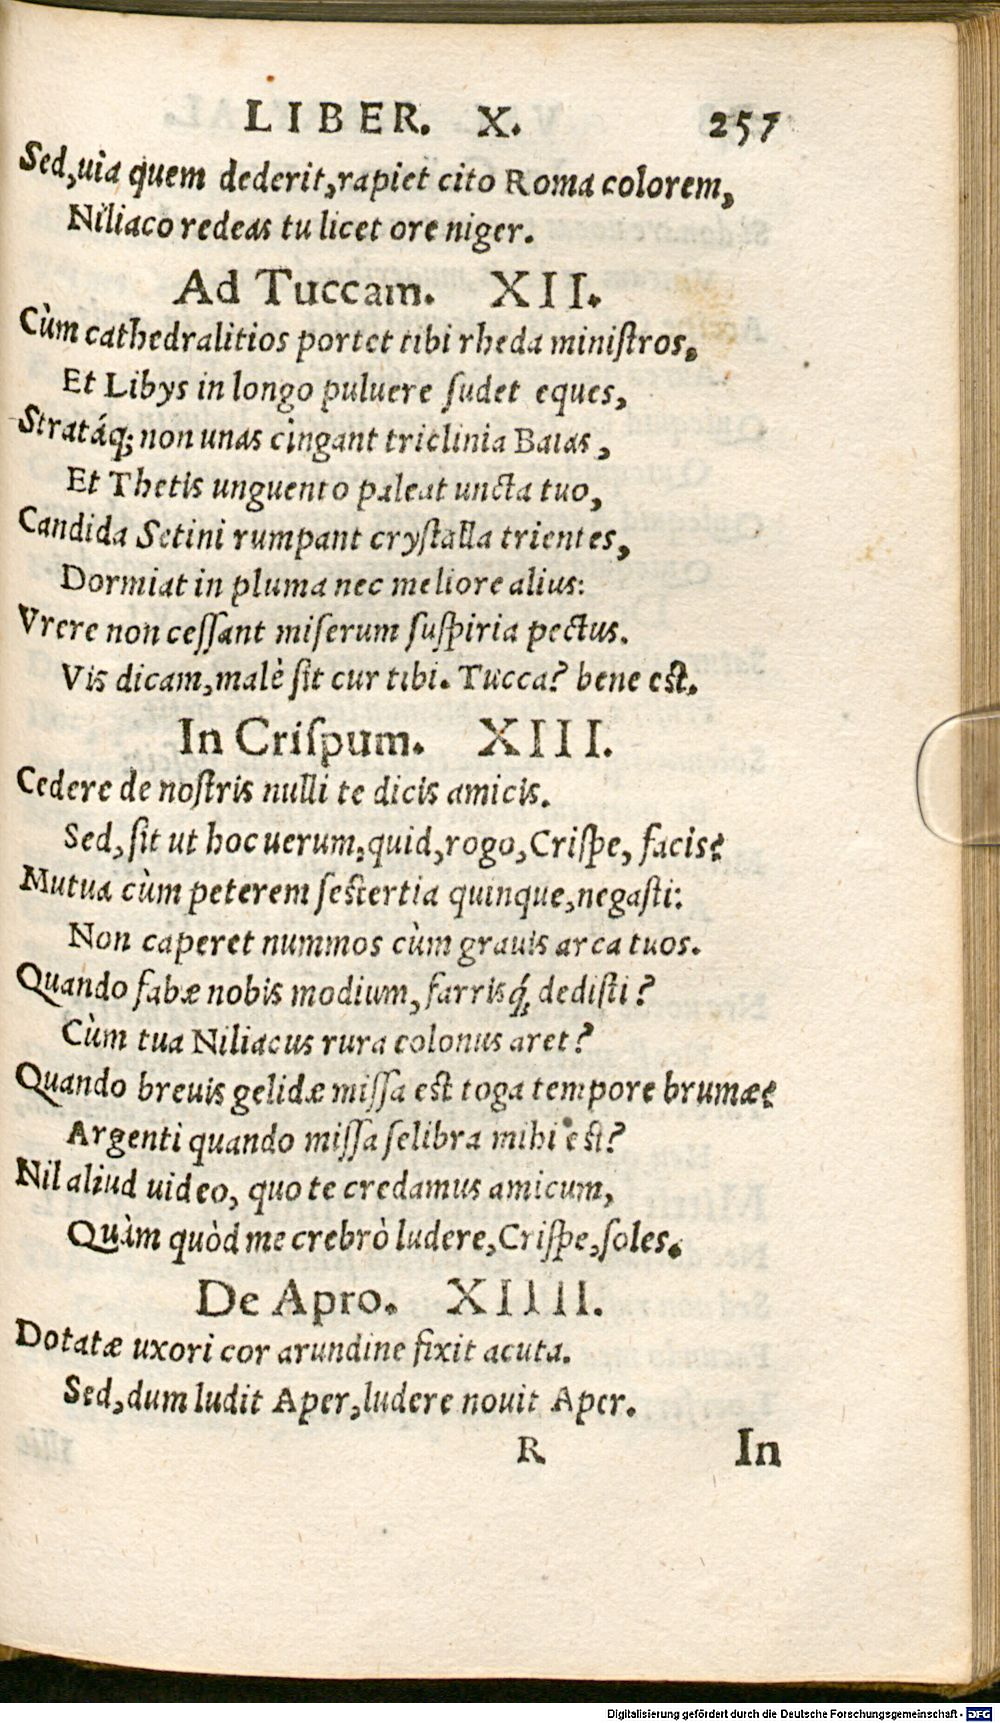 LIBER. X. 257
Sed, uia quem dederit, rapiet cito Roma colorem,
Niliaco redeas tu licet ore niger.
Ad Tuccam. XII.
Cùm cathedralitios portet tibi rheda miniſtros.
Et Libys in longo puluere ſudet eques,
Stratáq; non unas cingant triclinia Baias,
Et Thetis unguento paleat uncta tuo,
Candida Setini rumpant cryſtalla trientes,
Dormiat in pluma nec meliore alius:
Vrere non ceſſant miſerum ſuſpiria pectus.
Vis dicam, malè ſit cur tibi. Tucca? bene eſt.
In Criſpum. XIII.
Cedere de noſtris nulli te dicis amicis.
Sed, ſit ut hoc uerum, quid, rogo, Criſpe, facis?
Mutua cùm peterem ſeſtertia quinque, negaſti:
Non caperet nummos cùm grauis arca tuos.
Quando fabæ nobis modium, farrisq́; dediſti?
Cùm tua Niliacus rura colonus aret?
Quando breuis gelidæ miſſa eſt toga tempore brumæ?
Argenti quando miſſa ſelibra mihi eſt?
Nil aliud uideo, quo te credamus amicum,
Quàm quòd me crebrò ludere, Criſpe, ſoles.
De Apro. XIIII.
Dotatæ uxori cor arundine fixit acuta.
Sed, dum ludit Aper, ludere nouit Aper.
R In
Digitalisierung gefördert durch die Deutsche Forschungsgemeinschaft - DFG